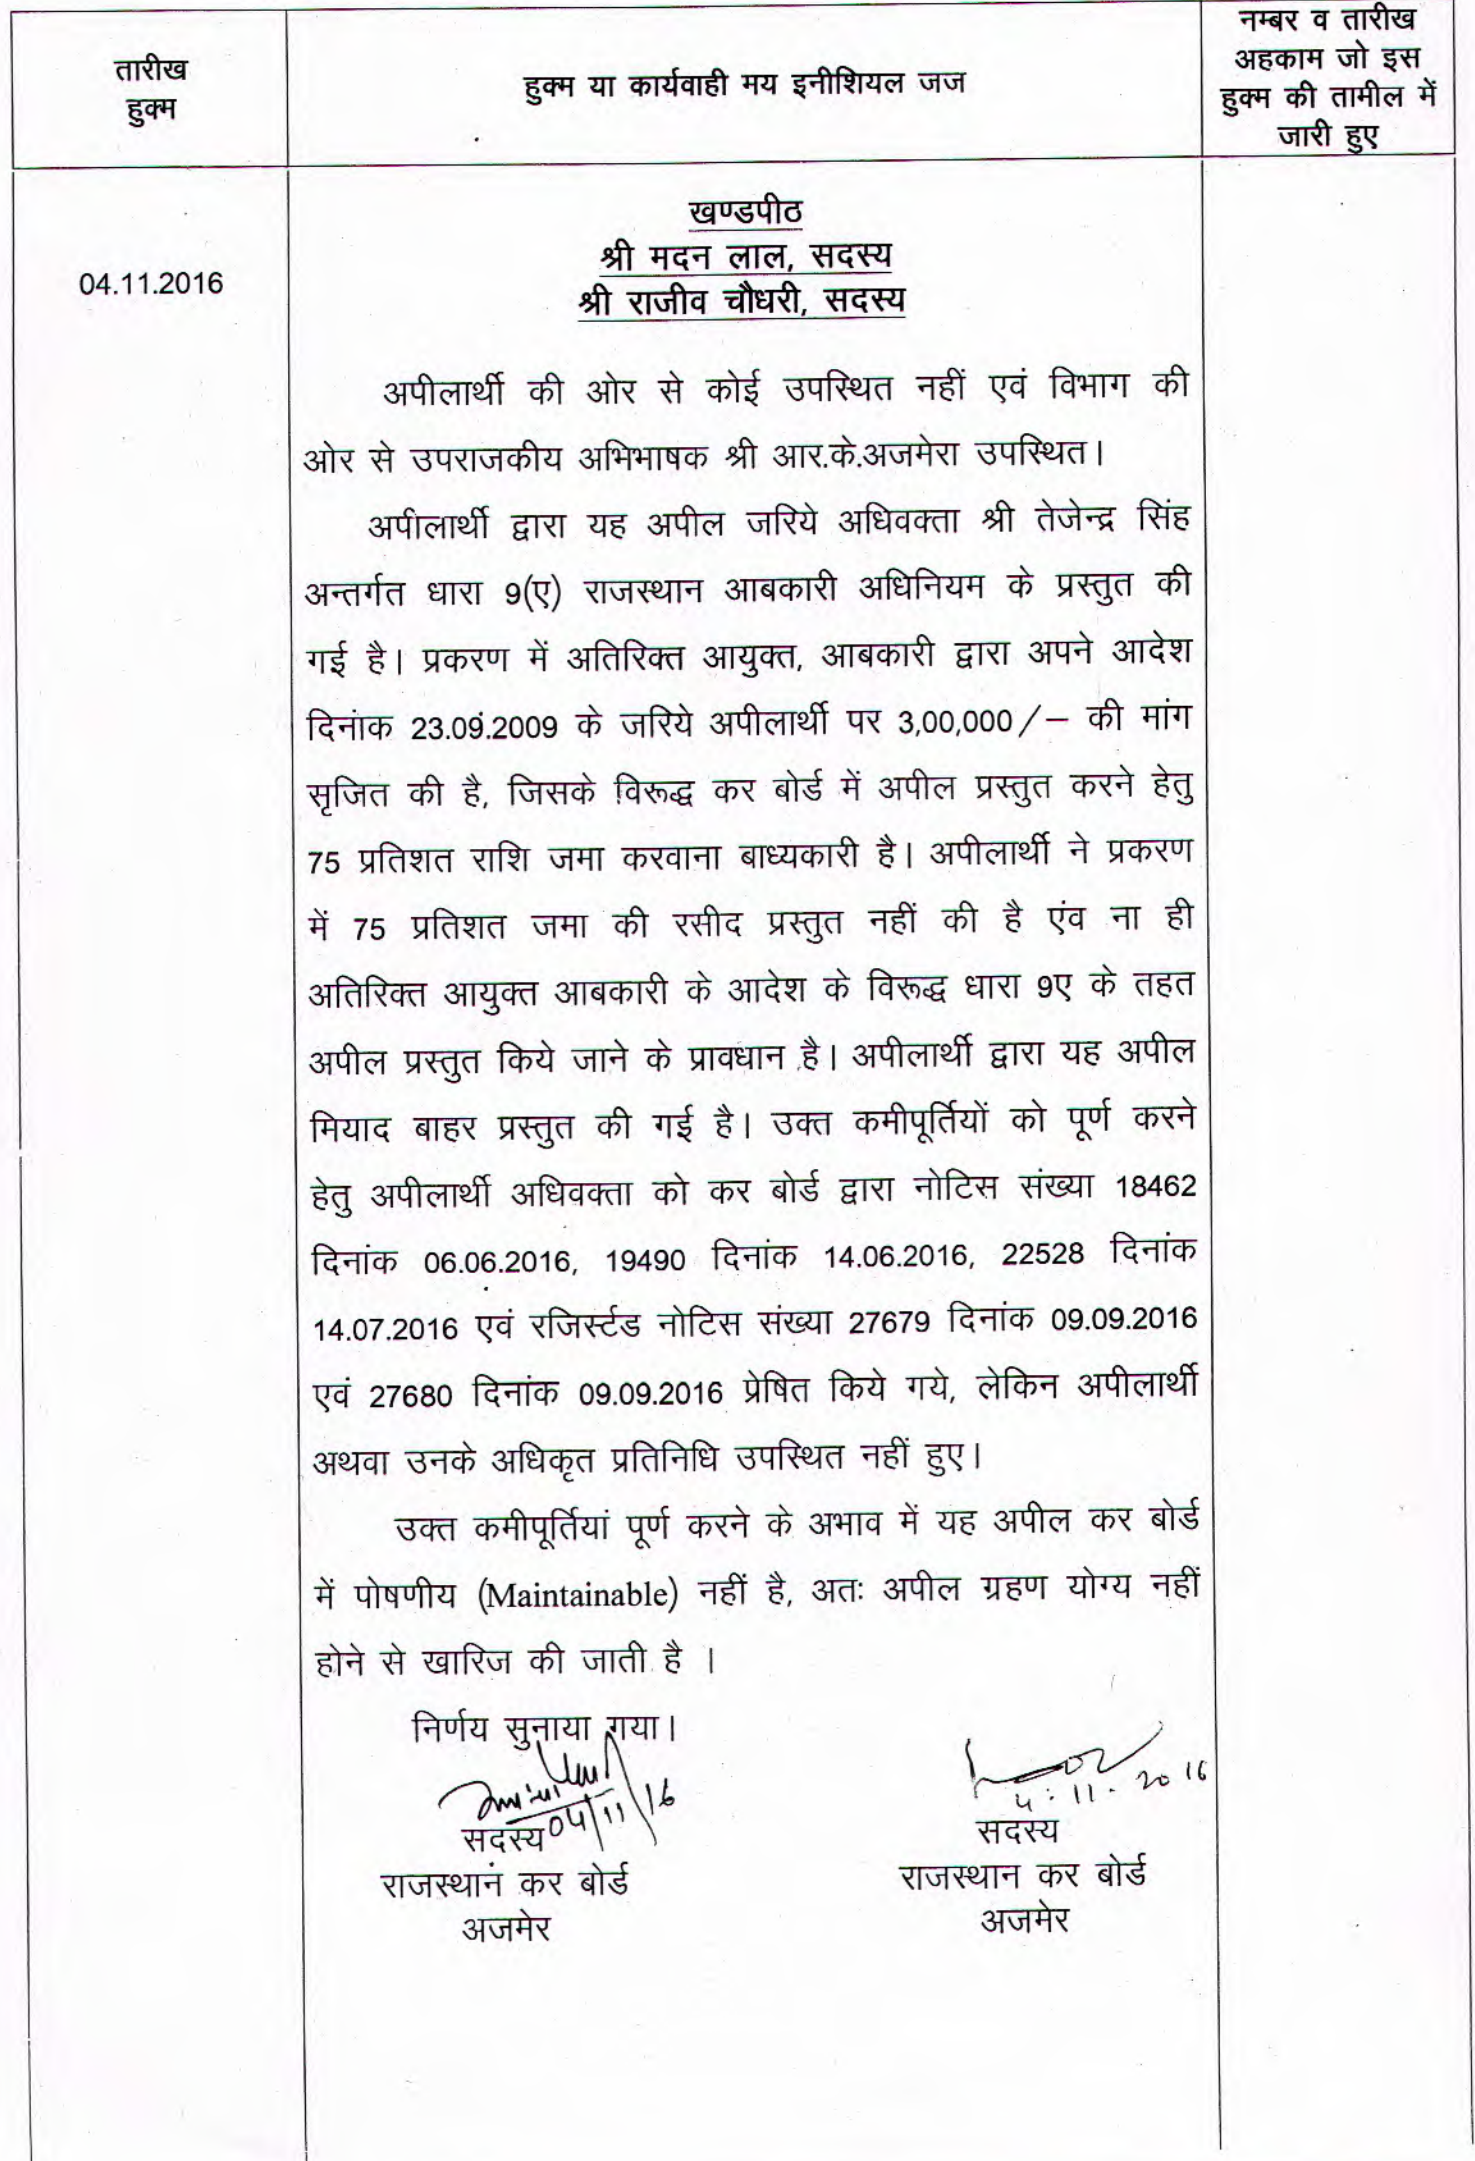 तारीख
हुक्म
हुक्म या कार्यवाही मय इनीशियल जज
नम्बर व तारीख
अहकाम जो इस
हुक्म की तामील में
जारी हुए
04.11.2016
खण्डपीठ
श्री मदन लाल, सदस्य
श्री राजीव चौधरी, सदस्य
अपीलार्थी की ओर से कोई उपस्थित नहीं एवं विभाग की
ओर से उपराजकीय अभिभाषक श्री आर.के.अजमेरा उपस्थित।
अपीलार्थी द्वारा यह अपील जरिये अधिवक्ता श्री तेजेन्द्र सिंह
अन्तर्गत धारा 9(ए) राजस्थान आबकारी अधिनियम के प्रस्तुत की
गई है। प्रकरण में अतिरिक्त आयुक्त, आबकारी द्वारा अपने आदेश
दिनांक 23.09.2009 के जरिये अपीलार्थी पर 3,00,000/– की मांग
सृजित की है, जिसके विरूद्ध कर बोर्ड में अपील प्रस्तुत करने हेतु
75 प्रतिशत राशि जमा करवाना बाध्यकारी है। अपीलार्थी ने प्रकरण
में 75 प्रतिशत जमा की रसीद प्रस्तुत नहीं की है एंव ना ही
अतिरिक्त आयुक्त आबकारी के आदेश के विरूद्ध धारा 9ए के तहत
अपील प्रस्तुत किये जाने के प्रावधान है। अपीलार्थी द्वारा यह अपील
मियाद बाहर प्रस्तुत की गई है। उक्त कमीपूर्तियों को पूर्ण करने
हेतु अपीलार्थी अधिवक्ता को कर बोर्ड द्वारा नोटिस संख्या 18462
दिनांक 06.06.2016, 19490 दिनांक 14.06.2016, 22528 दिनांक
14.07.2016 एवं रजिर्स्टड नोटिस संख्या 27679 दिनांक 09.09.2016
एवं 27680 दिनांक 09.09.2016 प्रेषित किये गये, लेकिन अपीलार्थी
अथवा उनके अधिकृत प्रतिनिधि उपस्थित नहीं हुए।
उक्त कमीपूर्तियां पूर्ण करने के अभाव में यह अपील कर बोर्ड
में पोषणीय (Maintainable) नहीं है, अतः अपील ग्रहण योग्य नहीं
होने से खारिज की जाती है ।
निर्णय सुनाया गया।
04/11/16
4.11.2016
सदस्य
राजस्थान कर बोर्ड
अजमेर
सदस्य
राजस्थान कर बोर्ड
अजमेर